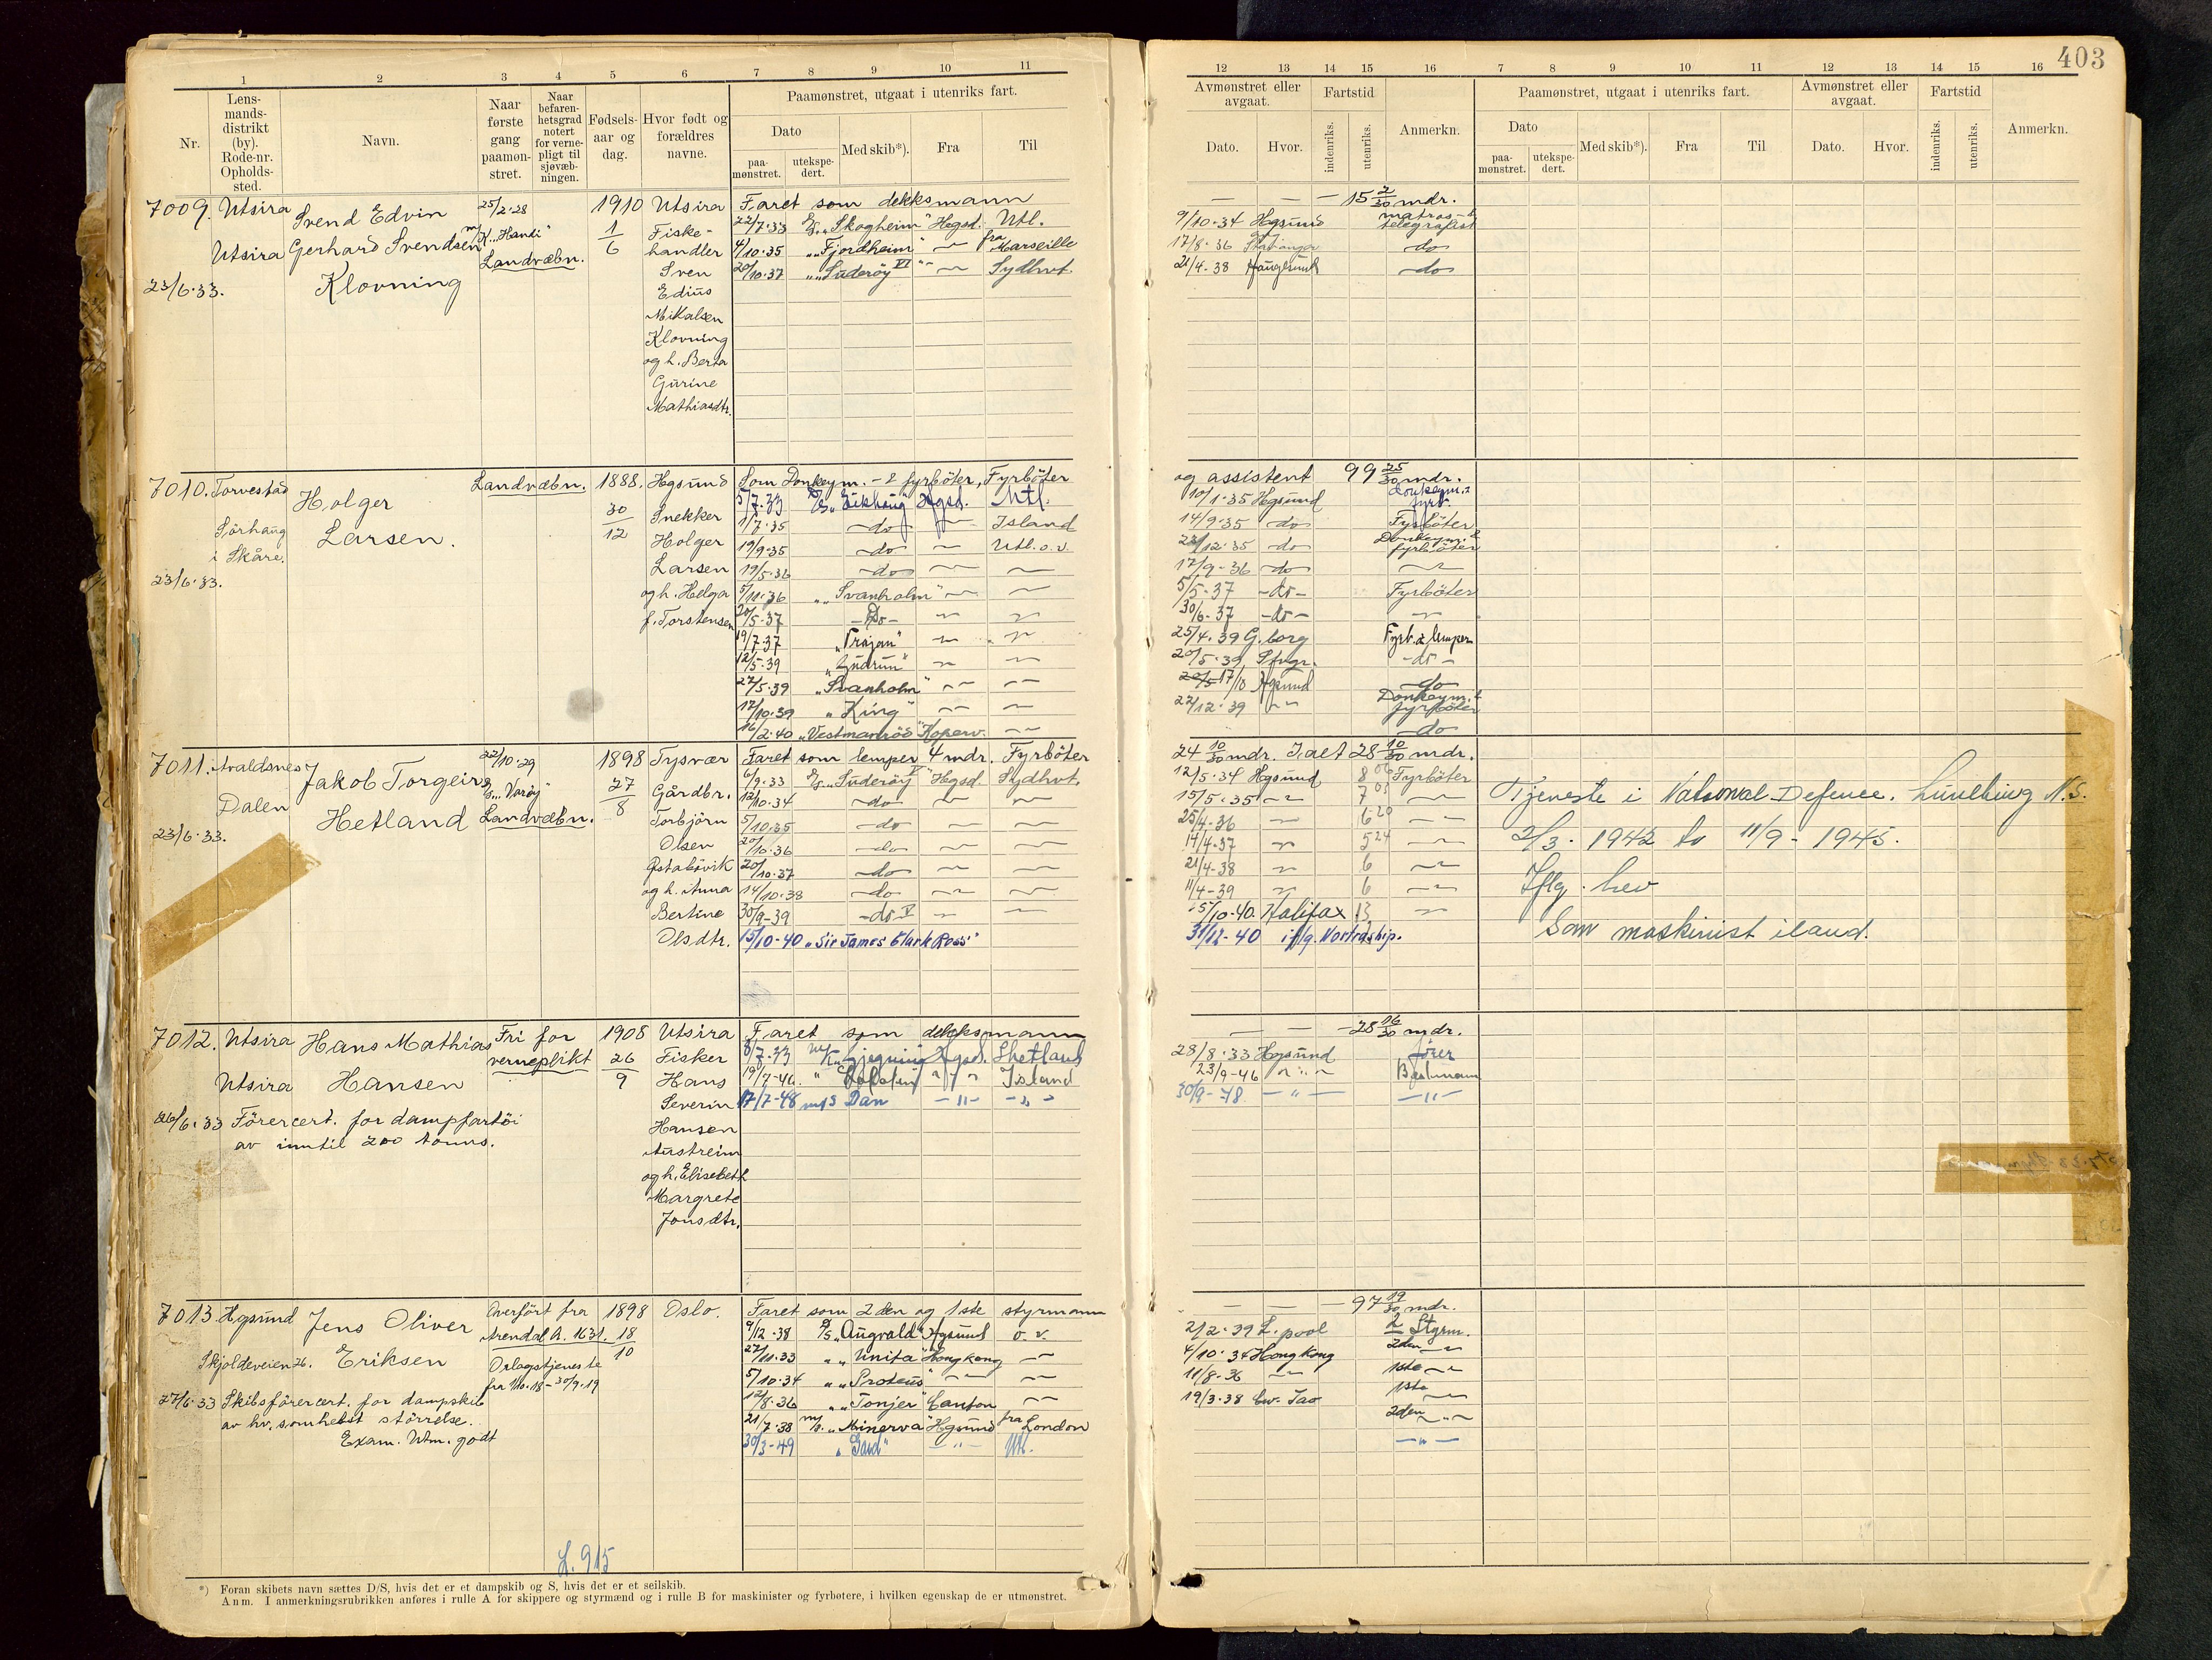 403
1 2 3 4 5 6 7 8 9 10 11
Nr.
Lens-
mands-
distrikt
(by).
Rode-nr.
Opholds-
sted.
Navn.
Naar
første
gang
paamøn-
stret.
Naar
befaren-
hetsgrad
notert
for verne-
pligt til
sjøvæb-
ningen.
Fødsels-
aar og
dag.
Hvor født og
forældres
navne.
Paamønstret, utgaat i utenriks fart.
Dato
paa-
mønstret.
utekspe-
dert.
Med skib*).
Fra
Til
12 13 14 15 16 7 8 9 10 11 12 13 14 15 16
Avmønstret eller
avgaat.
Dato.
Hvor.
Fartstid
indenriks.
utenriks.
Anmerkn.
Paamønstret, utgaat i utenriks fart.
Dato
paa-
mønstret.
utekspe-
dert.
Med skib*).
Fra
Til
Avmønstret eller
avgaat.
Dato.
Hvor.
Fartstid
indenriks.
utenriks.
Anmerkn.
7009. Utsira
Utsira
23/6.33.
Svend Edvin
Gerhard Svendsen
Klovning
25/2.28
m/K. „Handi"
Landvæbn.
1910
1
6
Utsira
Fiske-
handler
Sven
Edius
Mikalsen
Klovning
og h. Berta
Gurine
Mathiasdtr.
Faret som dekksmann — — 15 2/30 mdr.
22/7.33 D/S. „Skogheim" Hgsd. Utl. 9/10-34 Hgsund matros- & telegrafist
4/10.35 „ „Fjordheim" — fra Marseille 17/8.36 Stavanger do
20/10.37 „ „Suderöy VI" — Sydhvt. 21/4-38 Haugesund do
7010. Torvestad
Sörhaug
i Skåre.
23/6.33.
Holger
Larsen.
Landvæbn.
1888.
30
12
Hgsund
Snekker
Holger
Larsen
og h. Helga
f. Torstensen
Som Donkeym. - & fyrböter, Fyrböter og assistent 99 25/30 mdr.
5/7.33 D/S. „Eikhaug" Hgsd. Utl. 10/1.35 Hgsund Donkeym. & fyrb.
1/7.35 do — Island 14/9.35 do Fyrböter
19/9.35 do — Utl. o.v. 22/12.35 do Donkeym. & fyrböter
19/5.36 do — — 17/9-36 do —
5/11.36 „ „Svanholm" — — 5/5-37 -do- Fyrböter
20/5-37 -Do- — — 30/6-37 -do- —
19/7.37 „Trajan" — — 25/4.39 G.borg Fyrb. & lemper
12/5-39 „Gudrun" — — 20/5.39 Sfvgr. -do-
27/5.39 „Svanholm" — — 17/10 Hgsund do
17/10.39 „King" — — 22/12.39 — Donkeym. & fyrböter
16/2.40 „Vestmanröd" Koperv. — do
7011. Avaldsnes
Dalen
23/6.33.
Jakob Torgeir
Hetland
22/10.29
D/s. „Varöy"
Landvæbn.
1898
27
8
Tysvær
Gårdbr.
Torbjörn
Olsen
Östabövik
og h. Anna
Bertine
Olsdtr.
Faret som lemper 4 mdr. Fyrböter 24 10/30 mdr. I alt 28 10/30 mdr.
6/9.33 D/S. „Suderöy V" Hgsd. Sydhvt. 12/5.34 Hgsund 8 Fyrböter
12/10.34 do — — 15/5.35 — 7 —
5/10.35 do — — 25/4-36 — 6 20 —
20/10.36 do — — 14/4-37 — 5 24 —
20/10.37 do — — 21/4-38 — 6 —
14/10.38 do — — 11/4-39 — 6 —
30/9-39 -do- V — — 15/10-40. Halifax 13 —
15/10-40 „Sir James Clark Ross" 31/12-40 iflg. Nortraship.
Tjeneste i National Defence. N.S.
2/3. 1942 to 11/9-1945.
Iflg. brev
Som maskinist iland.
7012. Utsira
Utsira
26/6.33
Hans Mathias
Hansen
Förercert. for dampfartöi
av inntil 200 tonns.
Fri for
verneplikt
1908
26
9
Utsira
Fisker
Hans
Severin
Hansen
Austreim
og h. Elisebeth
Margrete
Jonsdtr.
Faret som dekksmann — — 28 16/30 mdr.
8/7.33 M/K. „Gjegning" Hgsd. Shetland 28/8.33 Hgsund förer
19/7-46. „ — Island 23/9-46 — Bestmann
17/7-48 m/s Dan -„- -„- 30/9-78 -„- -„-
7013 Hgsund
Skjoldeveien 26.
27/6.33
Jens Oliver
Eriksen
Skibsförercert. for dampskib
av hv. somhelst störrelse.
Exam. Utm. godt
Overfört fra
Arendal A. 1631.
Orlogstjeneste
fra 1/10.18 - 30/9.19
1898
18
10
Oslo.
Faret som 2den og 1ste styrmann — — 97 19/30 mdr.
9/12.38 D/S „Augvald" Hgsund o.v. 2/2.39 L.pool 2 Styrm.
27/11.33 „ „Unita" Hongkong — 4/10.34 Hongkong 2den —
5/10.34 „ „Proteus" — — 11/8-36 — 1ste —
12/8.36 „ „Tonjer" Canton — 19/3.38 Cw. Tao 1ste —
21/7.38 m/s. „Minerva" Hgsund fra London 2den —
30/3-49 „ „Gard" -„- Utl. -„-
L. 915
*) Foran skibets navn sættes D/S, hvis det er et dampskib og S, hvis det er et seilskib.
Anm. I anmerkningsrubrikken anføres i rulle A for skippere og styrmænd og i rulle B for maskinister og fyrbøtere, i hvilken egenskap de er utmønstret.